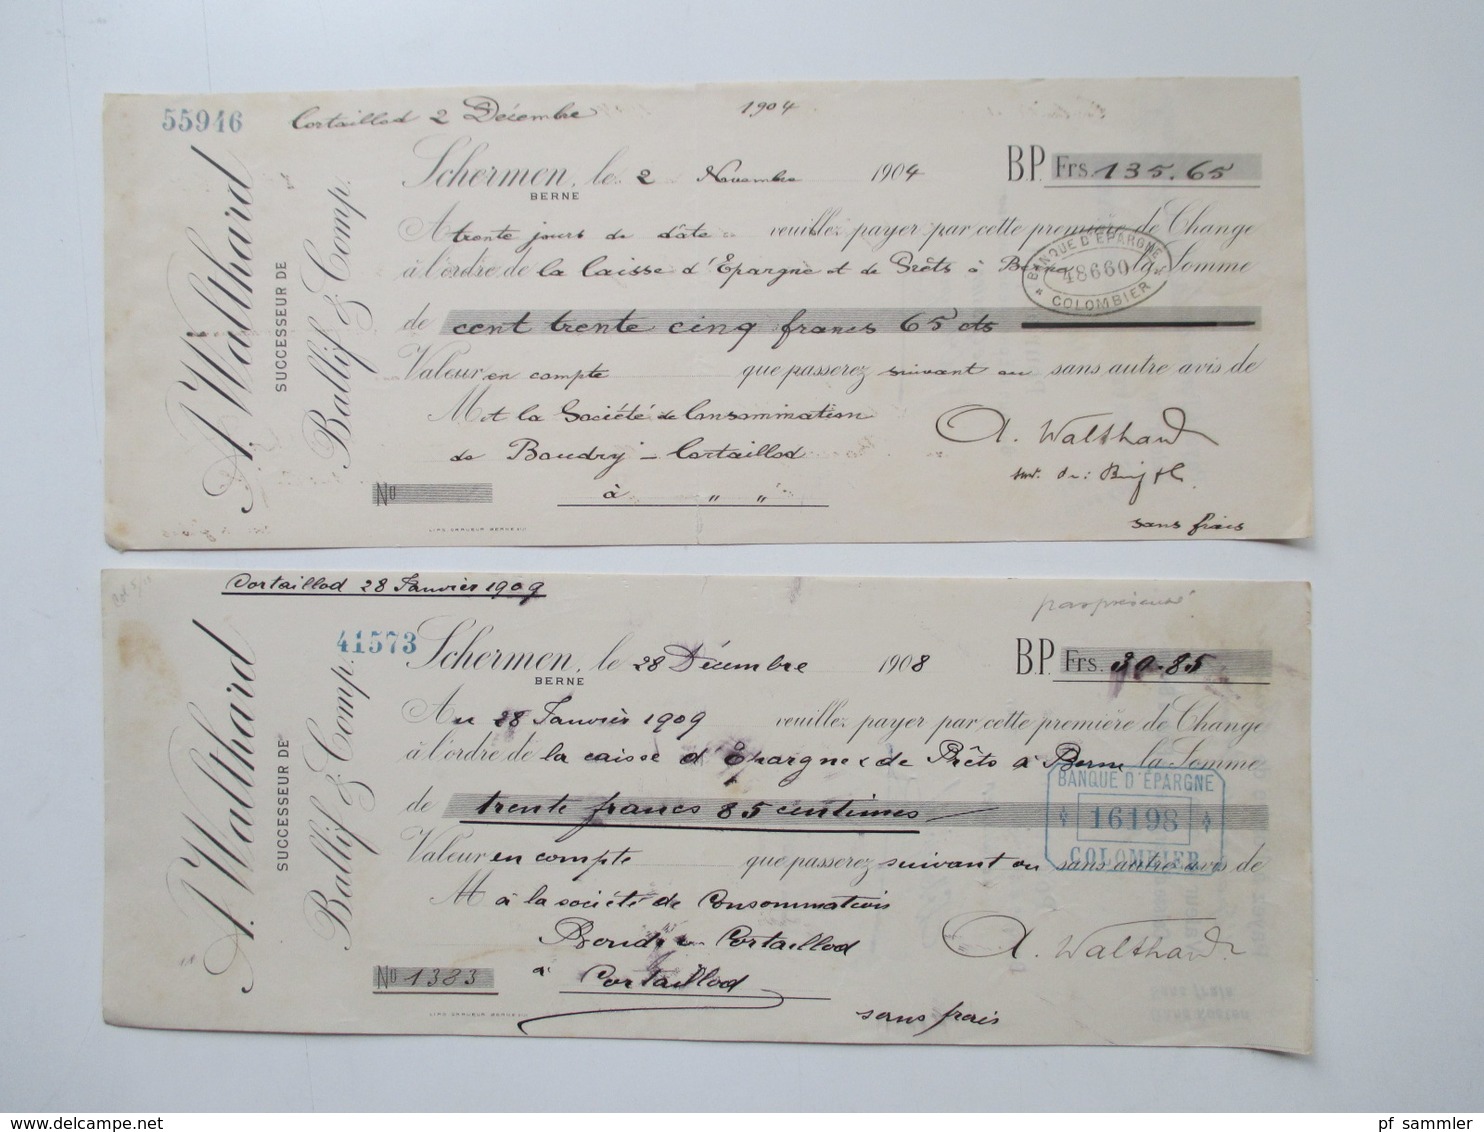 55946 Cortaillod 2 Décembre 1904
Schermen, le 2 Novembre 1904 B.P. Frs. 135.65
BERNE
A trente jours de date veuillez payer par cette première de Change
à l'ordre de la Caisse d'Epargne et de Prêts à Berne la Somme
de cent trente cinq francs 65 cts
Valeur en compte que passerez suivant ou sans autre avis de
M et la Société de Consommation
de Boudry - Cortaillod
à " "
No
A. Walthard
SUCCESSEUR DE
Ballif & Comp.
BANQUE D'EPARGNE
48660
COLOMBIER
A. Walthard
sans frais
Cortaillod 28 Janvier 1909
41573
Schermen, le 28 Décembre 1908 B.P. Frs. 30.85
BERNE
Au 28 Janvier 1909 veuillez payer par cette première de Change
à l'ordre de la caisse d'Epargne & de Prêts à Berne la Somme
de trente francs 85 centimes
Valeur en compte que passerez suivant ou sans autre avis de
M à la société de Consommation
Boudry Cortaillod
à Cortaillod
No 1383
A. Walthard
SUCCESSEUR DE
Ballif & Comp.
BANQUE D'ÉPARGNE
16198
COLOMBIER
A. Walthard
sans frais
pf sammler